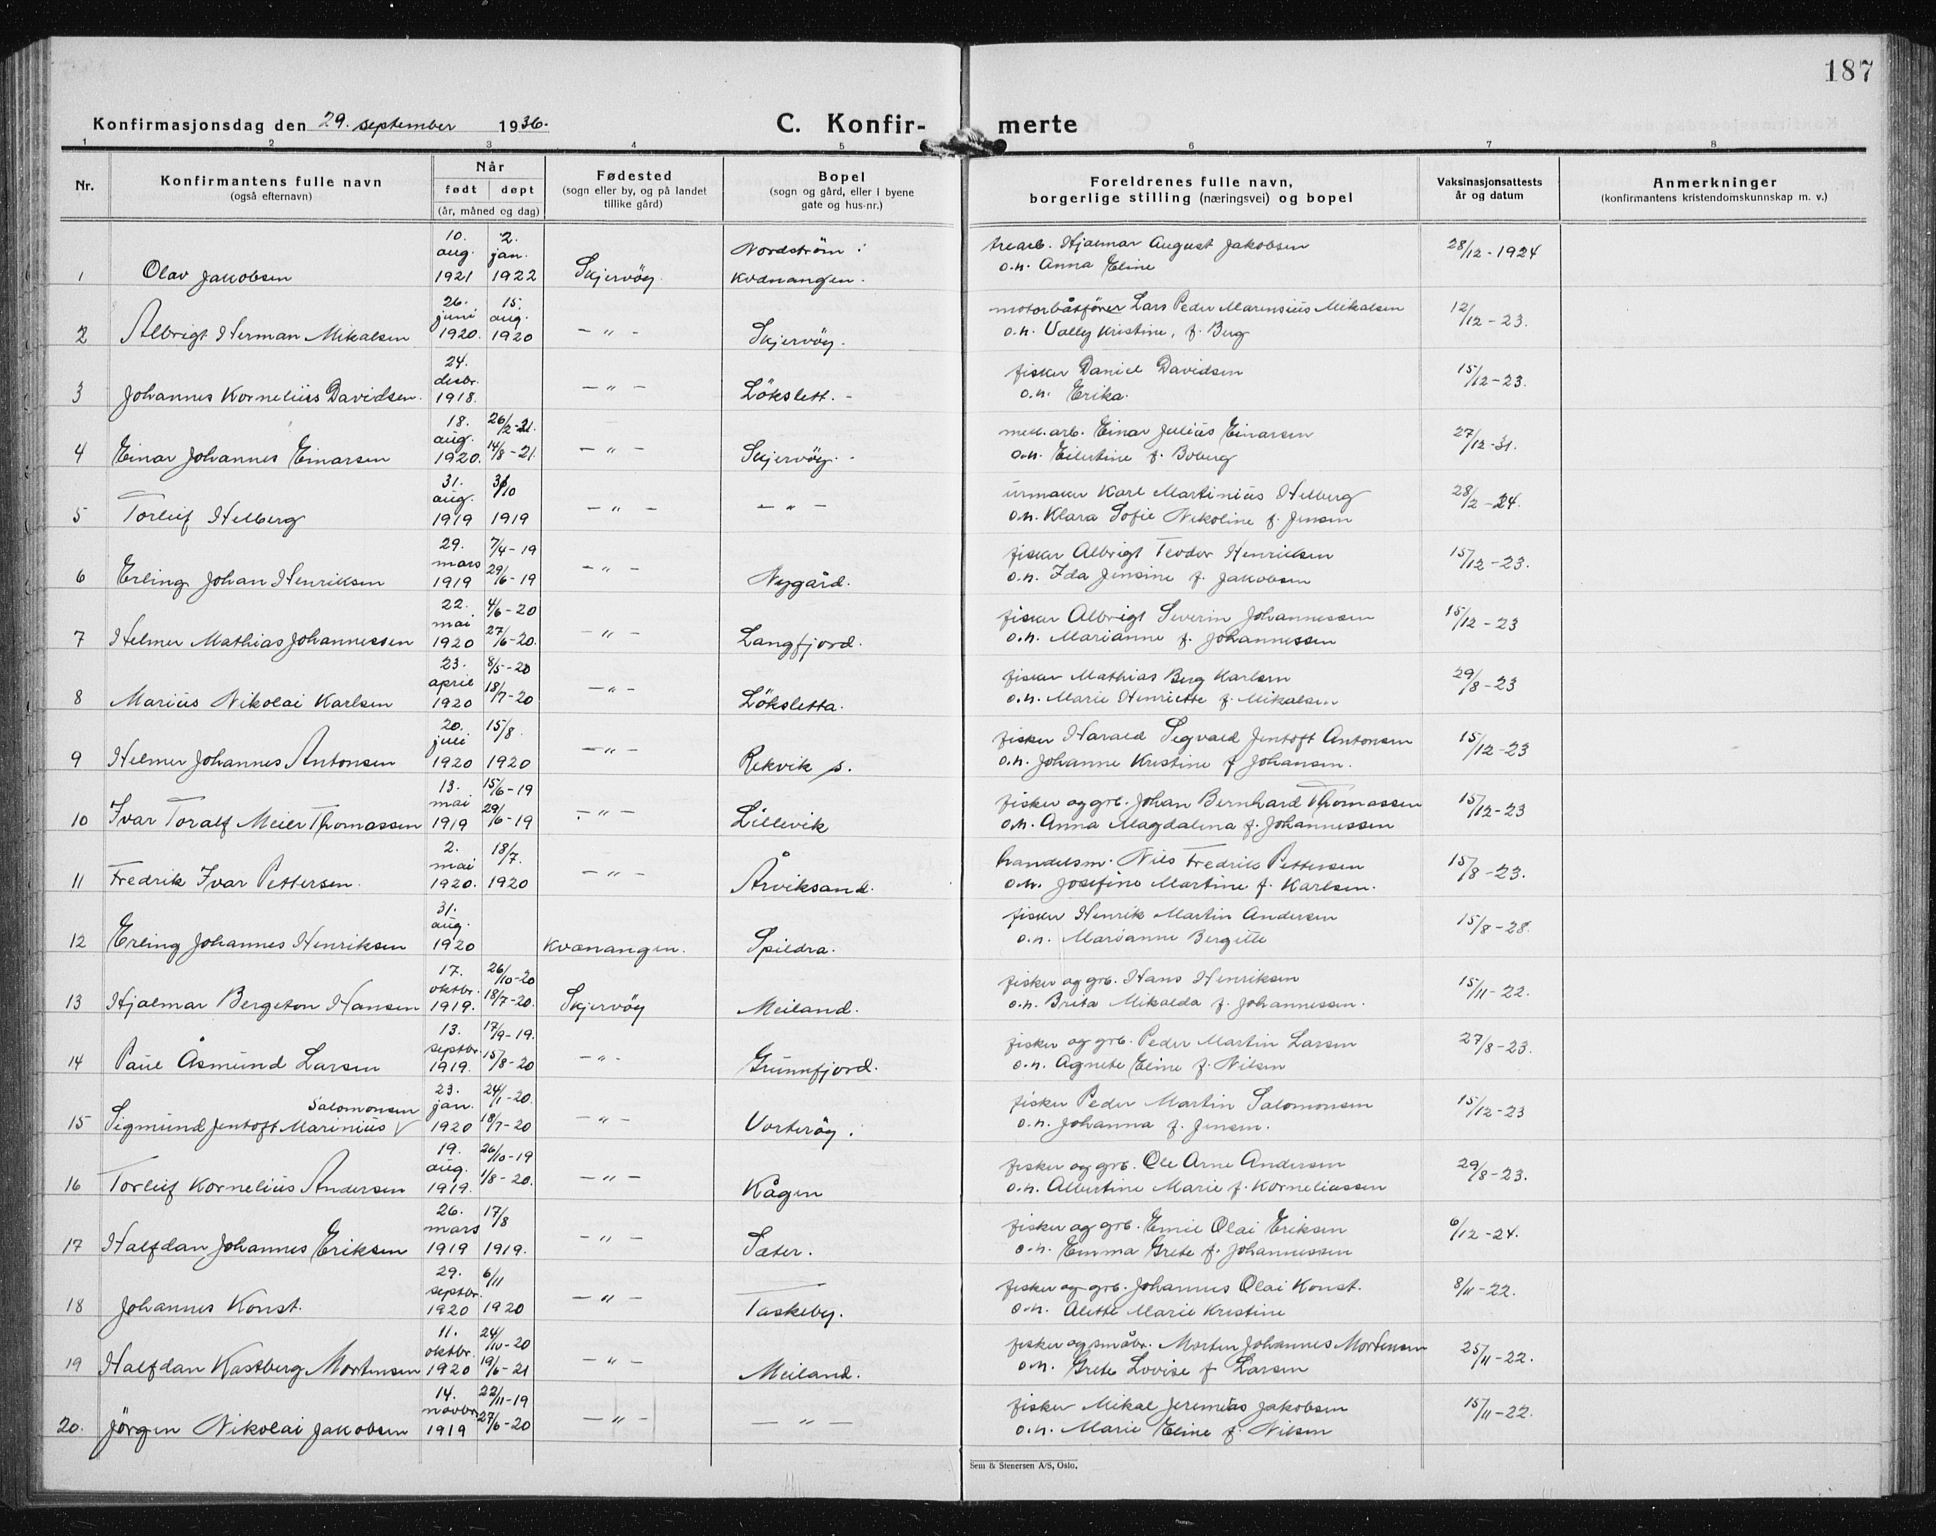 187
Konfirmasjonsdag den 29. september 1936.
C. Konfir- merte
1 2 3 4 5 6 7 8
Nr.
Konfirmantens fulle navn
(også efternavn)
Når
født døpt
(år, måned og dag)
Fødested
(sogn eller by, og på landet
tillike gård)
Bopel
(sogn og gård, eller i byene
gate og hus-nr.)
Foreldrenes fulle navn,
borgerlige stilling (næringsvei) og bopel
Vaksinasjonsattests
år og datum
Anmerkninger
(konfirmantens kristendomskunnskap m. v.)
1 Olav Jakobsen 10. aug. 1921 2. jan. 1922 Skjervöy Nordström i Kvænangen. trearb. Hjalmar August Jakobsen
o.h. Anna Eline 28/12-1924
2 Albrigt Herman Mikalsen 26. juni 1920. 15. aug. 1920 — " — Skjervöy. motorbåtförer Lars Peder Marensius Mikalsen
o.h. Vally Kristine, f. Berg 12/12-23.
3 Johannes Kornelius Davidsen. 24. desbr. 1918. — " — Lökslett. fisker Daniel Davidsen
o.h. Erika. 15/12-23.
4 Einar Johannes Einarsen 18. aug. 1920. 26/2-21. 14/8-21. — " — Skjervöy. med.arb. Einar Julius Einarsen
o.h. Eilertine f. Boberg 27/12-31.
5 Torleif Helberg 31. aug. 1919 31/10 1919 — " — — " — urmaker Karl Martinius Helberg
o.h. Klara Sofie Nikoline f. Jensen 28/2-24.
6 Erling Johan Henriksen 29. mars 1919 7/4-19 29/6-19 — " — Nygård. fisker Albrigt Teodor Henriksen
o.h. Ida Jensine f. Jakobsen 15/12-23.
7 Helmer Mathias Johannessen 22. mai 1920 4/6-20 27/6-20. — " — Langfjord. fisker Albrigt Severin Johannessen
o.h. Marianne f. Johannessen 15/12-23
8 Marius Nikolai Karlsen 23. april 1920 8/5-20 18/7-20 — " — Löksletta. fisker Mathias Berg Karlsen
o.h. Marie Henriette f. Mikalsen 29/8-23
9 Helmer Johannes Antonsen 20. juli 1920 15/8. 1920 — " — Rekvik s. fisker Harald Segvald Jentoft Antonsen
o.h. Johanne Kristine f Johansen. 15/12-23
10 Ivar Toralf Meier Thomassen 13. mai 1919 15/6-19 29/6-19 — " — Lillevik fisker og grb. Johan Bernhard Thomassen
o.h. Anna Magdalena f. Johannessen 15/12-23
11 Fredrik Ivar Pettersen. 2. mai 1920. 18/7. 1920 — " — Årviksand. handelsm. Nils Fredrik Pettersen
o.h. Josefine Martine f. Karlsen. 15/8-23.
12 Erling Johannes Henriksen 31. aug. 1920 Kvænangen. Spildra. fisker Henrik Martin Andersen
o.h. Marianne Bergitte 15/8-28.
13 Hjalmar Bergeton Hansen 17. oktbr. 1919. 26/10-20 18/7-20. Skjervöy Meiland. fisker og grb. Hans Henriksen
o.h. Brita Mikalda f. Johannessen. 15/11-22.
14 Paul Åsmund Larsen 13. septbr. 1919. 17/9-19. 15/8-20 — " — Grunnfjord. fisker og grb. Peder Martin Larsen
o.h. Agnete Eline f. Nilsen 27/8-23.
15 Sigmund Jentoft Marinius √ Salomonsen 23. jan. 1920 24/1-20. 18/7-20 — " — Vorteröy. fisker Peder Martin Salomonsen
o.h. Johanna f. Jensen. 15/12-23
16 Torleif Kornelius Andersen 19. aug. 1919. 26/10-19 1/8-20. — " — Kågen fisker og grb. Ole Arne Andersen
o.h. Albertine Marie f. Korneliussen 29/8-23.
17 Halfdan Johannes Eriksen 26. mars 1919 17/8 1919. — " — Sæter. fisker og grb. Emil Olai Eriksen
o.h. Emma Grete f. Johannessen 6/12-24.
18 Johannes Konst. 29. septbr. 1920 6/11 1920 — " — Taskeby. fisker og grb. Johannes Olai Konst.
o.h. Alette Marie Kristine 8/11-22.
19 Halfdan Kastberg Mortensen 11. oktbr. 1920 24/10-20 19/6-21 — " — Meiland. fisker og småbr. Morten Johannes Mortensen
o.h. Grete Lovise f Larsen 25/11-22.
20. Jörgen Nikolai Jakobsen 14. novbr. 1919 22/11-19 27/6-20 — " — — " — fisker Mikal Jeremias Jakobsen
o.h. Marie Eline f. Nilsen 15/11-22.
Sem & Stenersen A/S, Oslo.